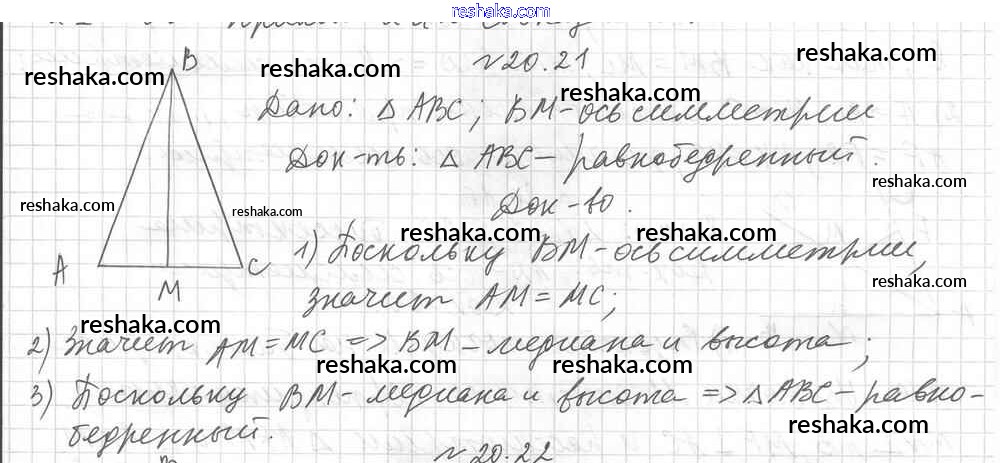 reshaka.com
№20.21
Дано: △ ABC; BM-ось симметрии
Док-ть: △ ABC – равнобедренный.
Док-во.
1) Поскольку BM-ось симметрии,
значит AM = MC;
2) Значит AM = MC => BM – медиана и высота;
3) Поскольку BM – медиана и высота => △ ABC – равно-
бедренный.
№20.22
B
A
M
C
reshaka.com
reshaka.com
reshaka.com
reshaka.com
reshaka.com
reshaka.com
reshaka.com
reshaka.com
reshaka.com
reshaka.com
reshaka.com
reshaka.com
reshaka.com
reshaka.com